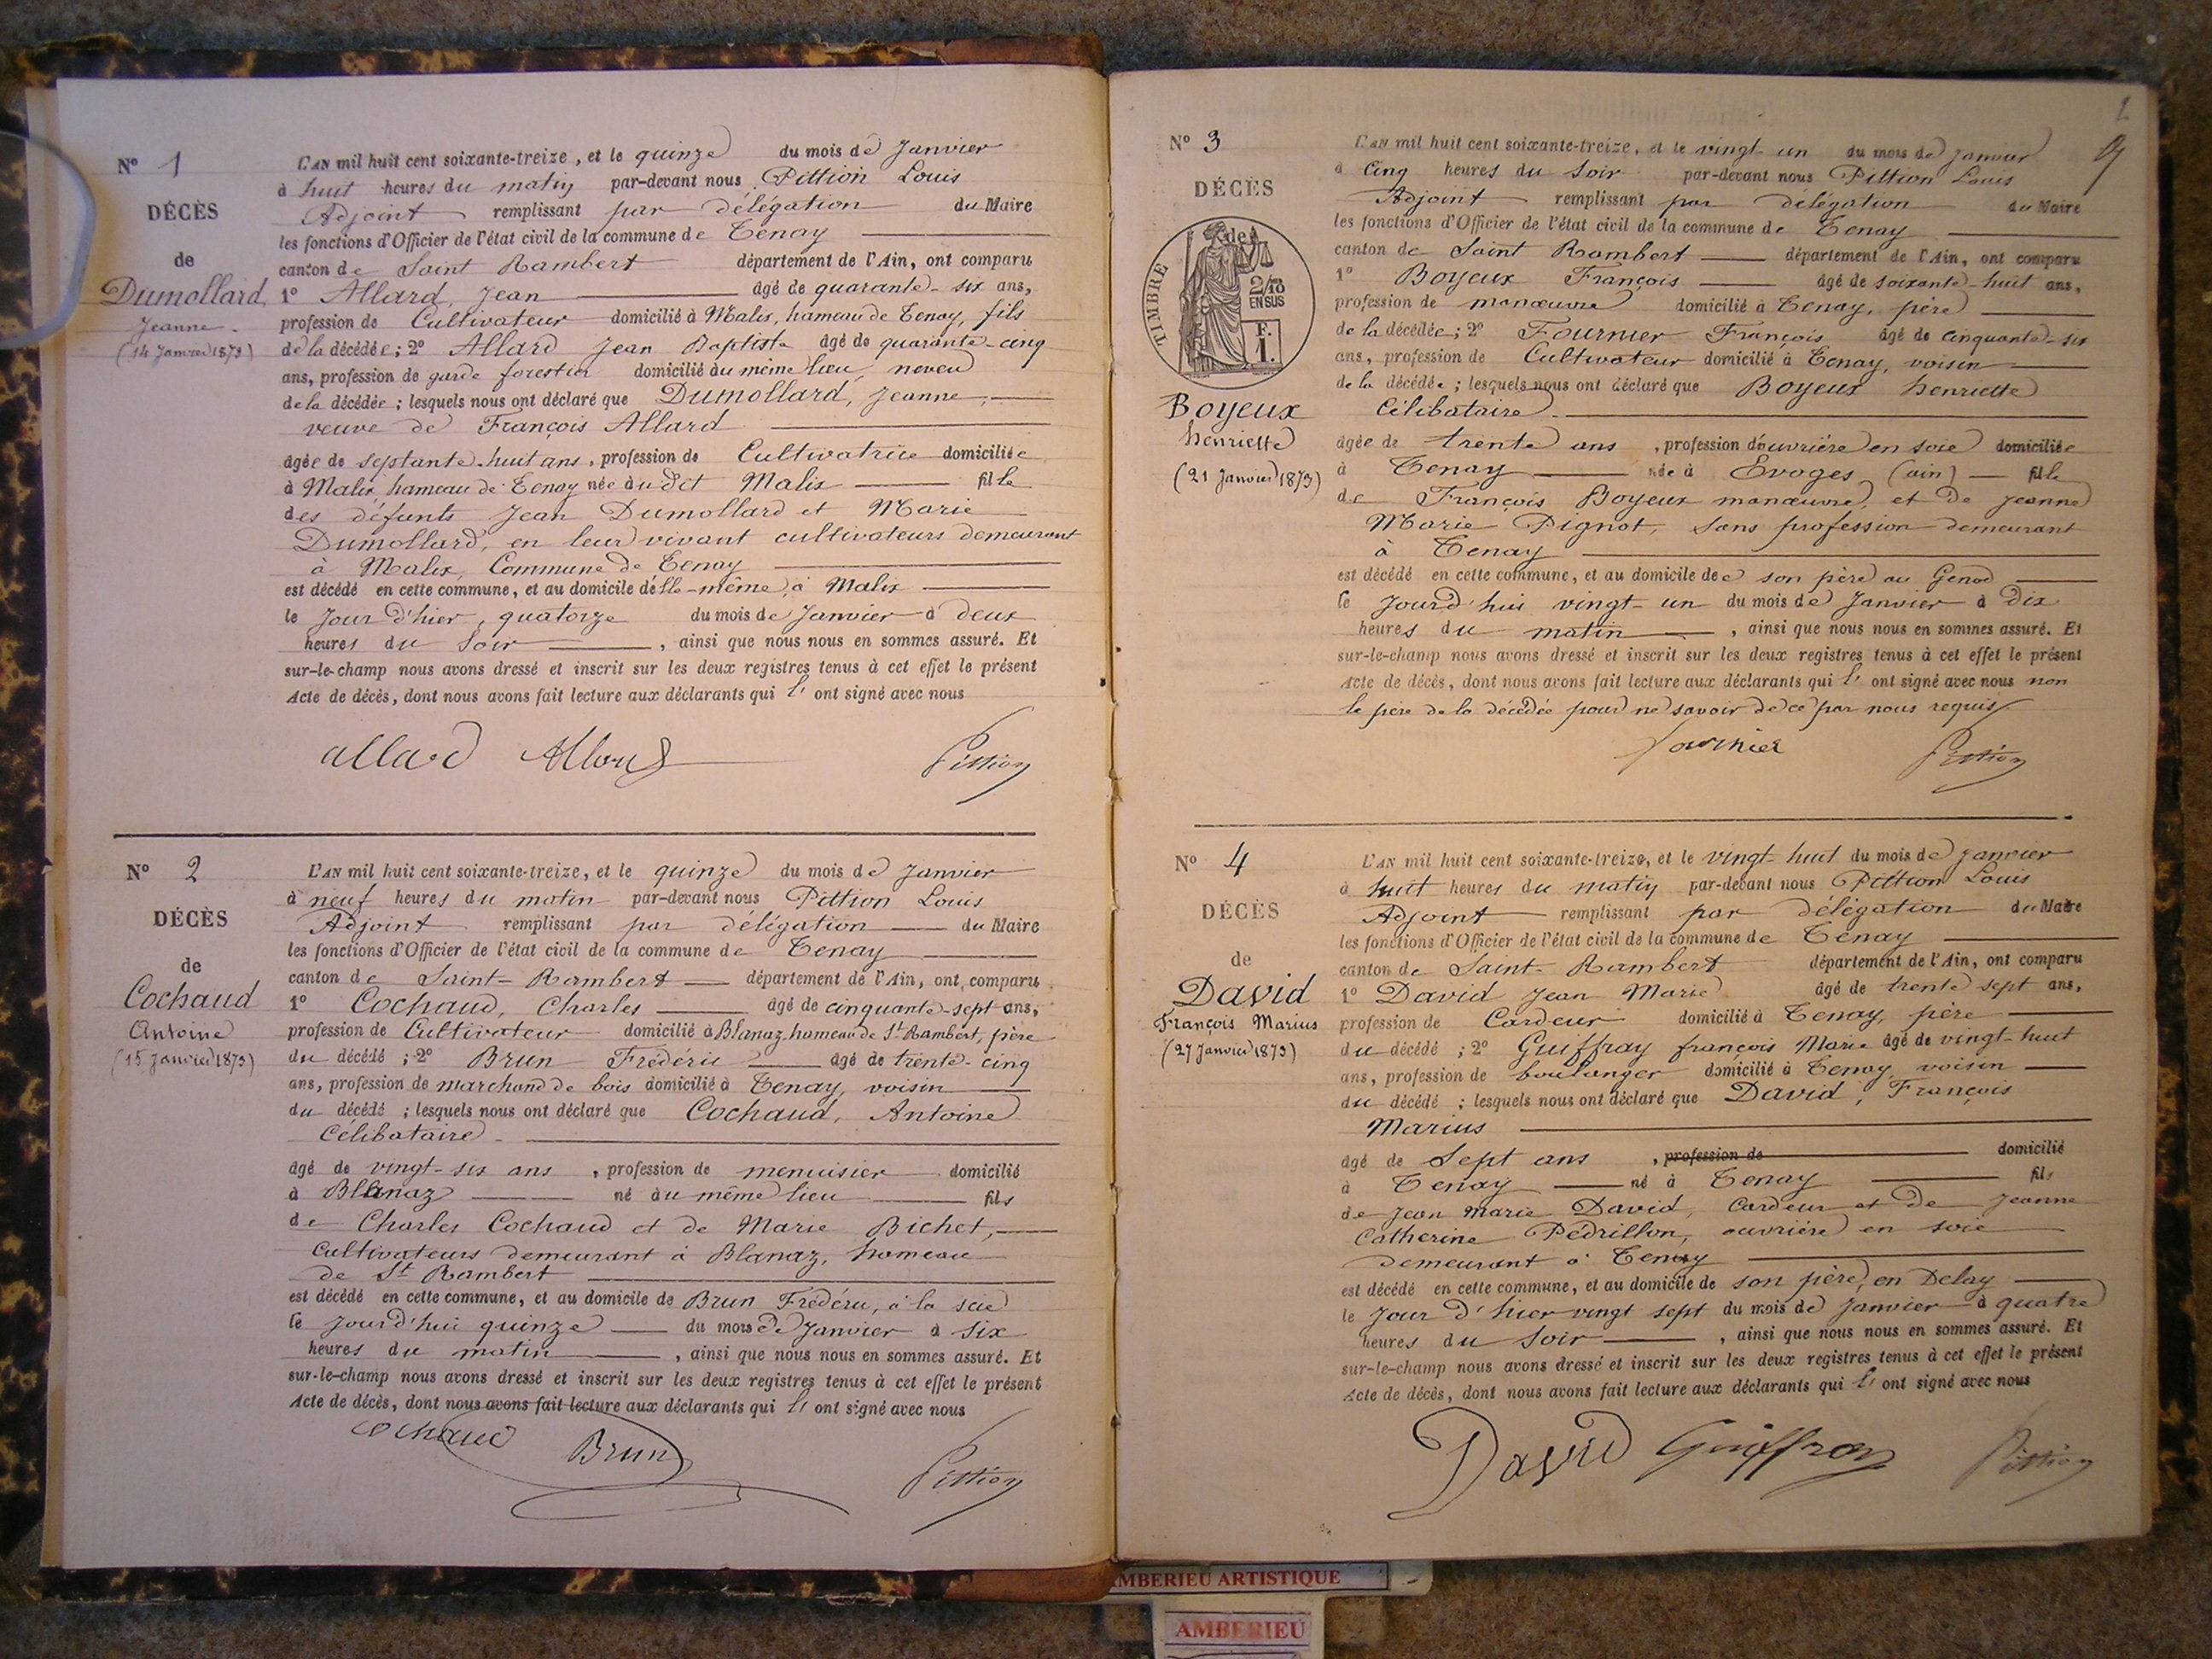 N° 1
DÉCÈS
de
Dumollard,
Jeanne
(14 Janvier 1873)
L'AN mil huit cent soixante-treize, et le quinze du mois de Janvier
à huit heures du matin par-devant nous Pittion Louis
Adjoint remplissant par délégation du Maire
les fonctions d'Officier de l'état civil de la commune de Tenay
canton de Saint Rambert département de l'Ain, ont comparu
1° Allard, Jean âgé de quarante-six ans,
profession de Cultivateur domicilié à Malix, hameau de Tenay, fils
de la décédée; 2° Allard Jean Baptiste âgé de quarante-cinq
ans, profession de garde forestier domicilié du même lieu, neveu
de la décédée; lesquels nous ont déclaré que Dumollard, Jeanne,
veuve de François Allard
âgée de septante-huit ans, profession de Cultivatrice domiciliée
à Malix, hameau de Tenay née au dit Malix fille
des défunts Jean Dumollard et Marie
Dumollard, en leur vivant cultivateurs demeurant
à Malix, Commune de Tenay
est décédé en cette commune, et au domicile d'elle-même, à Malix
le jour d'hier, quatorze du mois de Janvier à deux
heures du soir, ainsi que nous nous en sommes assuré. Et
sur-le-champ nous avons dressé et inscrit sur les deux registres tenus à cet effet le présent
Acte de décès, dont nous avons fait lecture aux déclarants qui l' ont signé avec nous
allard Allard Pittion
N° 2
DÉCÈS
de
Cochaud
Antoine
(15 Janvier 1873)
L'AN mil huit cent soixante-treize, et le quinze du mois de Janvier
à neuf heures du matin par-devant nous Pittion Louis
Adjoint remplissant par délégation du Maire
les fonctions d'Officier de l'état civil de la commune de Tenay
canton de Saint-Rambert département de l'Ain, ont comparu
1° Cochaud, Charles âgé de cinquante-sept ans,
profession de Cultivateur domicilié à Blanaz, hameau de St Rambert, père
du décédé; 2° Brun Fréderic âgé de trente-cinq
ans, profession de marchand de bois domicilié à Tenay, voisin
du décédé; lesquels nous ont déclaré que Cochaud, Antoine
Célibataire
âgé de vingt-six ans, profession de menuisier domicilié
à Blanaz né au même lieu fils
de Charles Cochaud et de Marie Bichet,
Cultivateurs demeurant à Blanaz, hameau
de St Rambert
est décédé en cette commune, et au domicile de Brun Fréderic, à la scie
le jourd'hui quinze du mois de Janvier à six
heures du matin, ainsi que nous nous en sommes assuré. Et
sur-le-champ nous avons dressé et inscrit sur les deux registres tenus à cet effet le présent
Acte de décès, dont nous avons fait lecture aux déclarants qui l' ont signé avec nous
Cochaud Brun Pittion
2
N° 3
DÉCÈS
de
TIMBRE
2/10
EN SUS
F.
1.
Boyeux
henriette
(21 Janvier 1873)
L'AN mil huit cent soixante-treize, et le vingt-un du mois de Janvier
à Cinq heures du soir par-devant nous Pittion Louis
Adjoint remplissant par délégation du Maire
les fonctions d'Officier de l'état civil de la commune de Tenay
canton de Saint Rambert département de l'Ain, ont comparu
1° Boyeux François âgé de soixante-huit ans,
profession de manœuvre domicilié à Tenay, père
de la décédée; 2° Fournier François âgé de cinquante-six
ans, profession de Cultivateur domicilié à Tenay, voisin
de la décédée; lesquels nous ont déclaré que Boyeux henriette
Célibataire
âgée de trente ans, profession d'ouvrière en soie domiciliée
à Tenay née à Evoges (ain) fille
de François Boyeux manœuvre, et de Jeanne
Marie Pignot, sans profession demeurant
à Tenay
est décédé en cette commune, et au domicile de son père au
le jourd'hui vingt-un du mois de Janvier à dix
heures du matin, ainsi que nous nous en sommes assuré. Et
sur-le-champ nous avons dressé et inscrit sur les deux registres tenus à cet effet le présent
Acte de décès, dont nous avons fait lecture aux déclarants qui l' ont signé avec nous non
le père de la décédée pour ne savoir de ce par nous requis
fournier Pittion
N° 4
DÉCÈS
de
David
François Marius
(27 Janvier 1873)
L'AN mil huit cent soixante-treize, et le vingt-huit du mois de Janvier
à huit heures du matin par-devant nous Pittion Louis
Adjoint remplissant par délégation du Maire
les fonctions d'Officier de l'état civil de la commune de Tenay
canton de Saint-Rambert département de l'Ain, ont comparu
1° David Jean Marie âgé de trente sept ans,
profession de Cardeur domicilié à Tenay, père
du décédé; 2° Guiffray françois Marie âgé de vingt-huit
ans, profession de boulanger domicilié à Tenay voisin
du décédé; lesquels nous ont déclaré que David, François
Marius
âgé de Sept ans, profession de domicilié
à Tenay né à Tenay fils
de Jean Marie David, Cardeur et de Jeanne
Catherine Pédrillon, ouvrière en soie
demeurant à Tenay
est décédé en cette commune, et au domicile de son père, en Delay
le jour d'hier vingt sept du mois de Janvier à quatre
heures du soir, ainsi que nous nous en sommes assuré. Et
sur-le-champ nous avons dressé et inscrit sur les deux registres tenus à cet effet le présent
Acte de décès, dont nous avons fait lecture aux déclarants qui l' ont signé avec nous
David Guiffray Pittion
AMBERIEU ARTISTIQUE
AMBERIEU